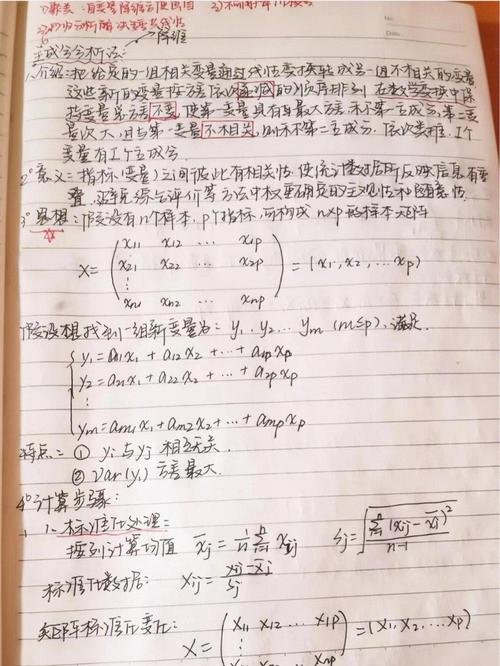 No:
Date:
→ 降维
主成分分析法:
1°介绍:把给定的一组相关变量通过线性变换转成另一组不相关的变量
这些新的变量按方差依次递减的顺序排列.在数学变换中保
持变量总方差不变,使第一变量具有最大方差,称第一主成分,第二变
量次大,且与第一变量不相关,则称第二主成分.依次类推,I个
变量有I个主成分.
2°意义:指标(变量)之间彼此有相关性,使统计数据所反映信息有重
叠.避免综合评价等方法中权重确定的主观性和随意性.
3°思想:假设有n个样本,p个指标,可构成n×p的样本矩阵
X = ( x11 x12 ... x1p
x21 x22 ... x2p
⋮
xn1 xn2 ... xnp ) = (x1, x2, ... xp)
假设想找到一组新变量为:y1, y2 ... ym (m≤p),满足.
{ y1 = a11x1 + a12x2 + ... + a1pxp
y2 = a21x1 + a22x2 + ... + a2pxp
⋮
ym = am1x1 + am2x2 + ... + ampxp
特点:① yi与yj 相互无关.
② Var(y1) 方差最大.
4°计算步骤:
1、标准化处理:
按列计算均值 x̄j = 1/n Σ xij Sj = √(Σ(xij - x̄j)² / n-1)
标准化数据: Xij = (xij - x̄j) / Sj
X = ( X11 X12 ... X1p
⋮ ... Xnp ) = (X1, X2, ... Xp)